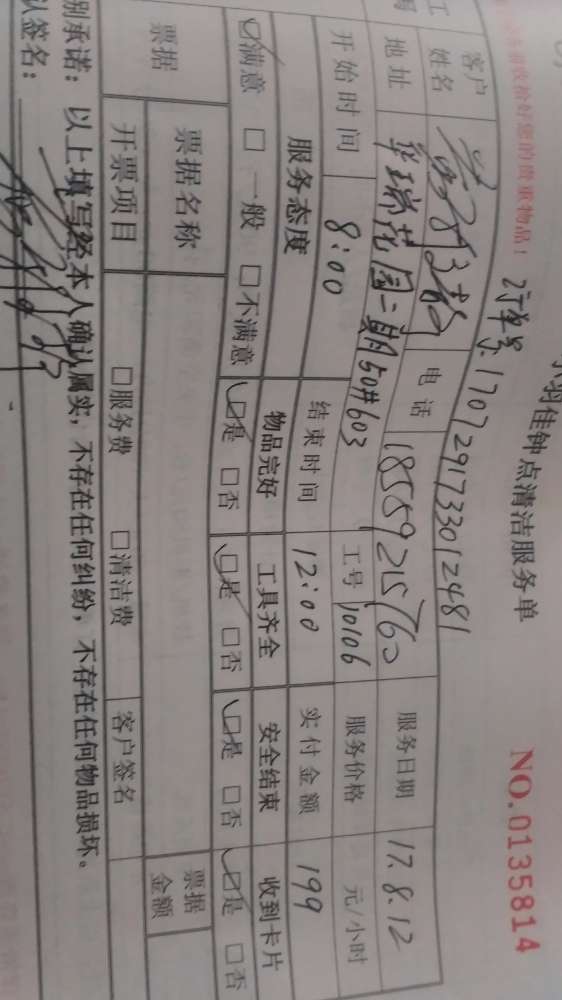 羽佳钟点清洁服务单
NO.0135814
收拾好您的贵重物品！
订单号 1707291733012481
客户姓名 电话 18559215760 服务日期 17.8.12
地址 华瑞花园二期50#603 工号 10106 服务价格 元/小时
开始时间 8:00 结束时间 12:00 实付金额 199
服务态度 物品完好 工具齐全 安全结束 收到卡片
☑满意 □一般 □不满意 ☑是 □否 ☑是 □否 ☑是 □否 ☑是 □否
票据 票据名称 票据金额
开票项目 □服务费 □清洁费 客户签名
别承诺：以上填写经本人确认属实，不存在任何纠纷，不存在任何物品损坏。
认签名：